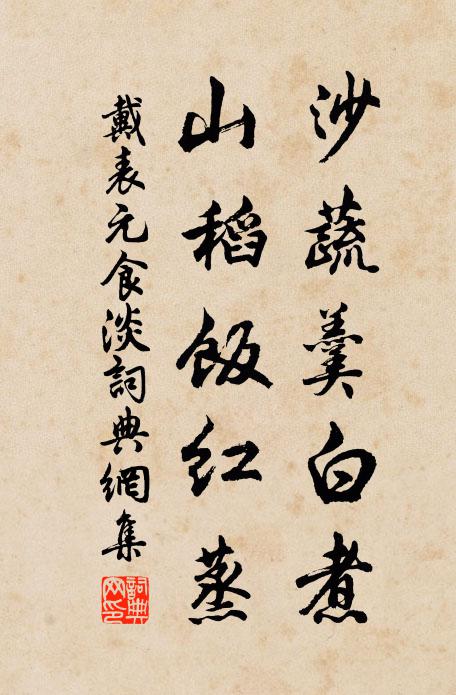 沙蔬羹白煮
山稻飯紅蒸
戴表元食淡詞典網集
詞典网印